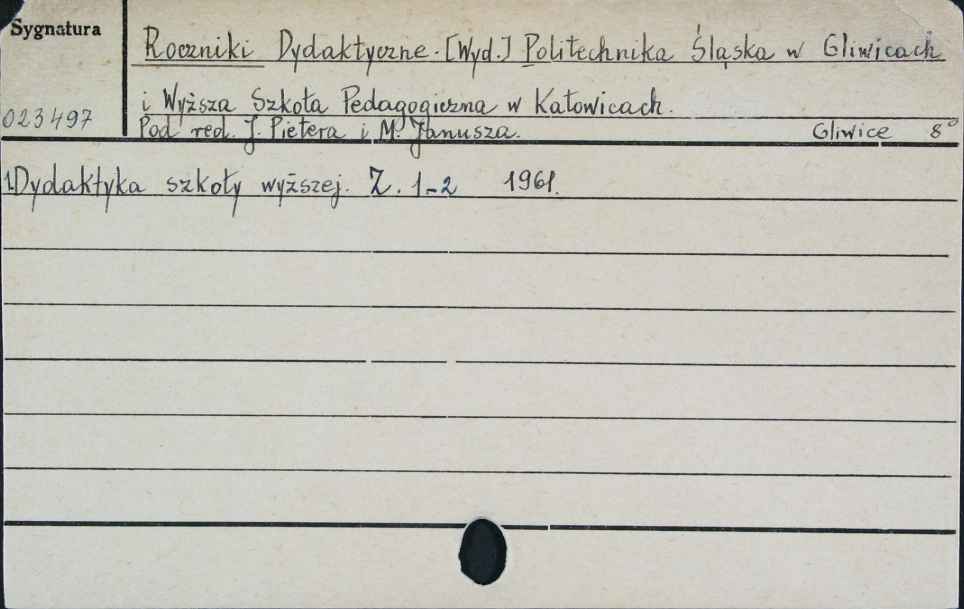 Sygnatura
Roczniki Dydaktyczne. [Wyd.] Politechnika Śląska w Gliwicach
i Wyższa Szkoła Pedagogiczna w Katowicach.
023497
Pod red. J. Pietera i M. Janusza. Gliwice 8°
1.Dydaktyka szkoły wyższej. Z. 1-2 1961.